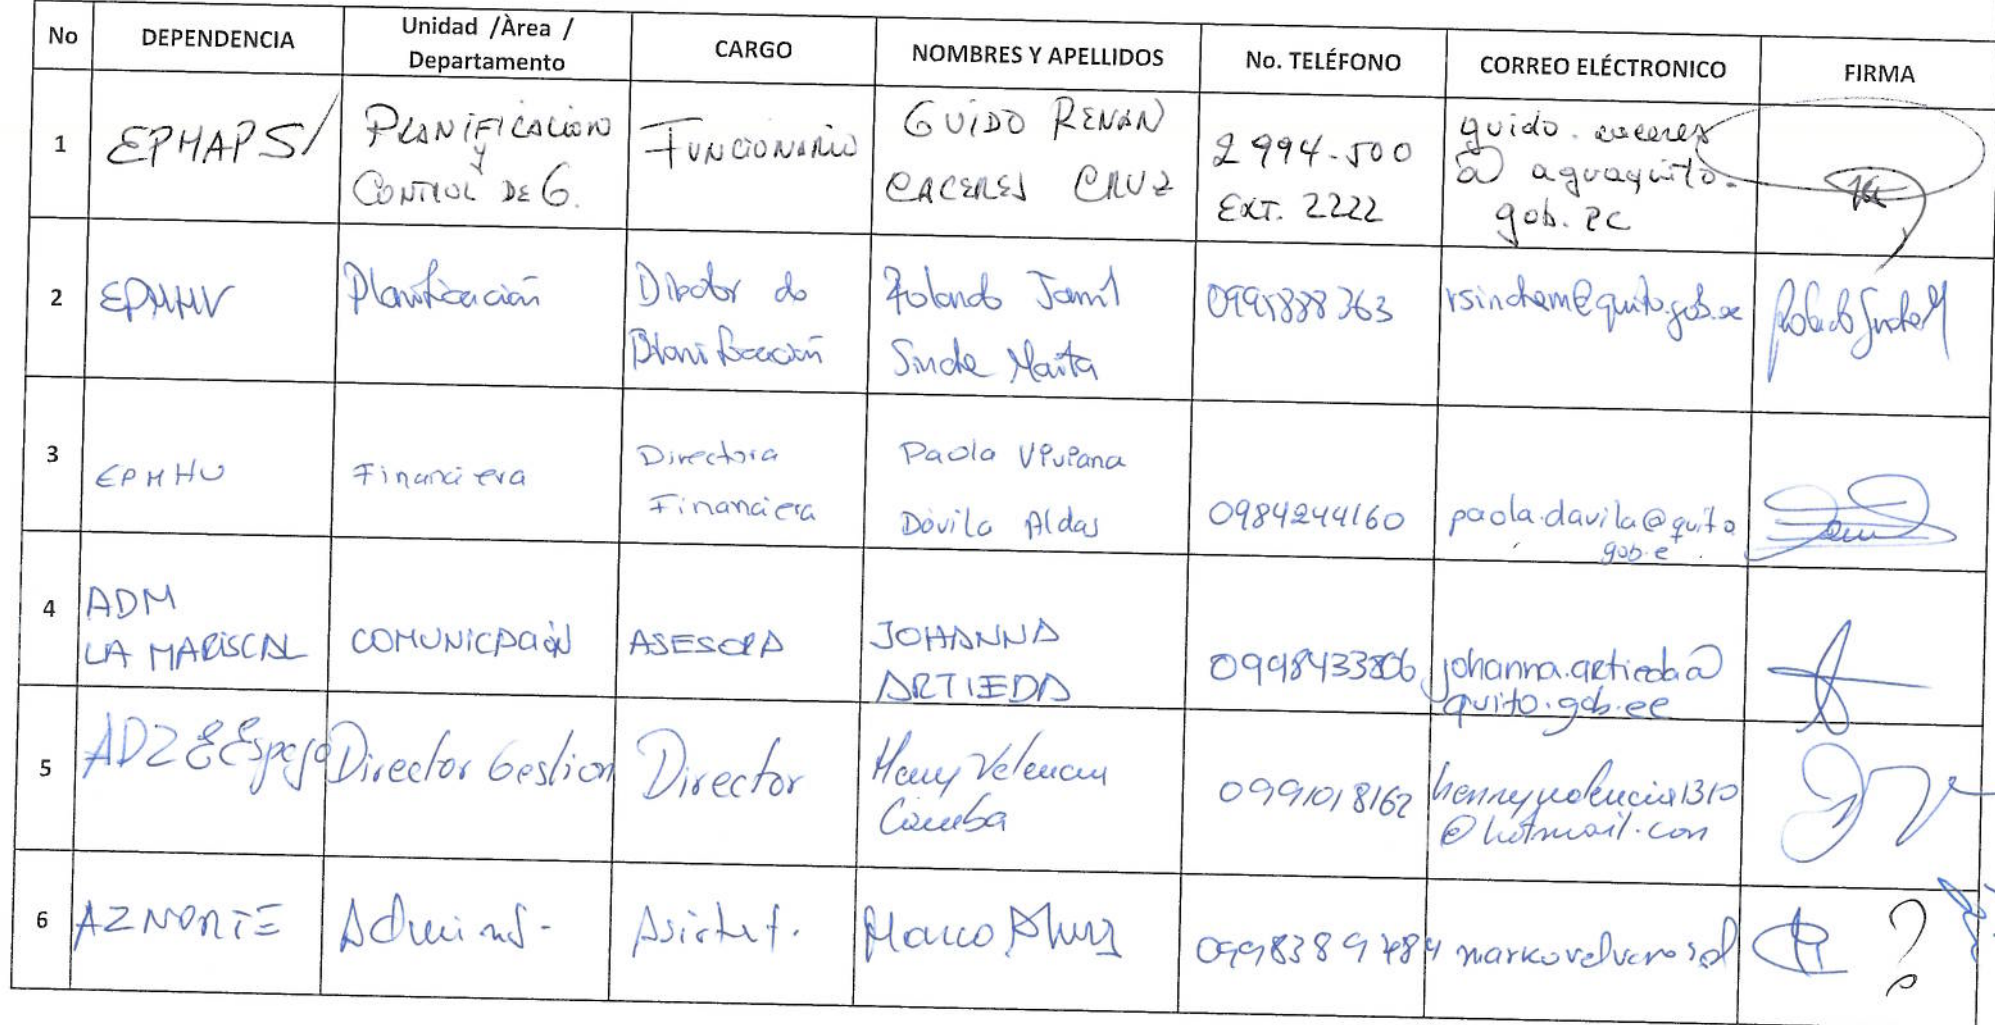 No DEPENDENCIA Unidad /Àrea / Departamento CARGO NOMBRES Y APELLIDOS No. TELÉFONO CORREO ELÉCTRONICO FIRMA
1 EPMAPS/ PLANIFICACION Y CONTROL DE G. FUNCIONARIO GUIDO RENAN CACERES CRUZ 2994-500 EXT. 2222 guido.caceres@aguaquito.gob.ec
2 EPMHV Planificación Director de Planificación Rolando Jamil Sinche Maita rsinchem@quito.gob.ec
3 EPMHV Financiera Directora Financiera Paola Viviana Dávila Aldas 0984244160 paola.davila@quito gob.e
4 ADM LA MARISCAL COMUNICACIÓN ASESORA JOHANNA ARTIEDA johanna.artieda@quito.gob.ec
5 ADZ EEspejo Director Gestion Director Henry Valencia 0991018162 henryvalencia1310@hotmail.com
6 AZ NORTE Marco ?